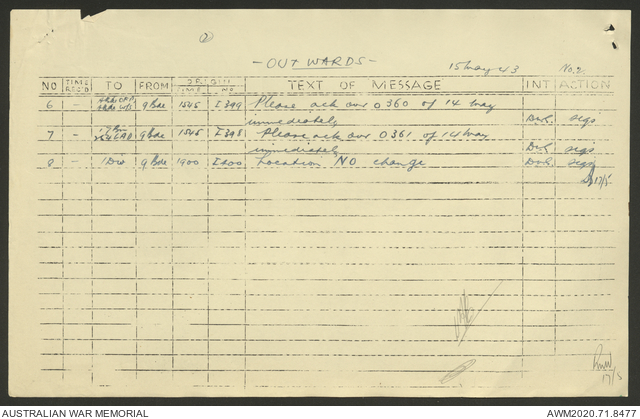 - OUTWARDS -
15 May 43 No. 2.
NO TIME REC'D TO FROM ORIGIN TIME NO. TEXT OF MESSAGE INT ACTION
6 - 9 Bde 1545 I399 Please ack our O360 of 14 May
immediately sigs
7 - 9 Bde 1545 I398 Please ack our O361 of 14 May
immediately sigs
8 - 1 Div 9 Bde 1900 I400 Location NO change sigs
17/5
17/5
AUSTRALIAN WAR MEMORIAL AWM2020.71.8477